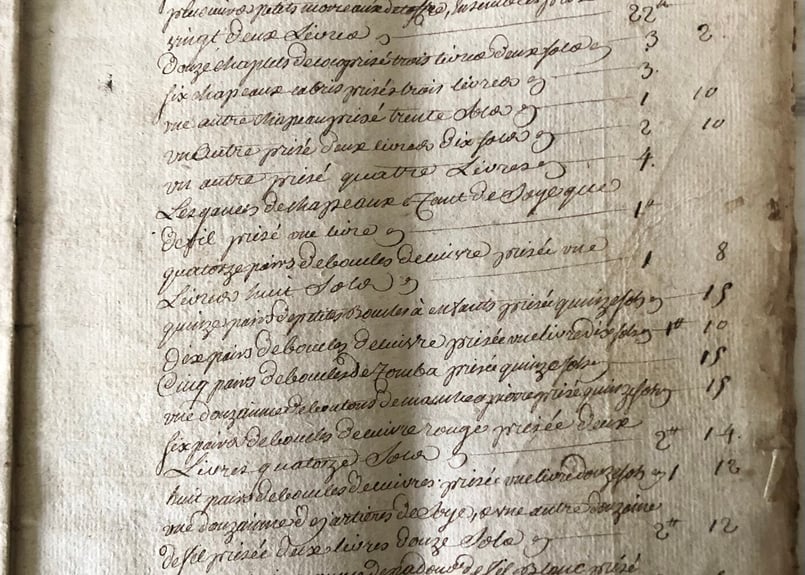 plusieurs petits morceaux d'etoffe, ensemble
vingt deux Livres 22 lt
Douze chaplets de coco prisé trois livres deux sols 3 2
six chapeaux cabris prisés trois livres 3
une autre chapeau prisé trente Sols 1 10
un Autre prisé deux livres dix sols 2 10
un autre prisé quatre Livres 4
Les gances de chapeaux Tant de Soye que
de fil prisé une livre 1 lt
quatorze paires de boucles de cuivre prisée une
Livres huit Sols 1 8
quinze paires de petites Boucles à enfants prisée quinze sols 15
Dix paires de boucles de cuivre prisée une livre dix sols 1 lt 10
Cinq paires de boucles de Tomba prisée quinze sols 15
une douzainne de boutons de manche prisé quinze sols 15
six paires de boucles de cuivre rouge prisée deux
Livres quatorze Sols 2 lt 14
huit paires de boucles de cuivres prisée une livre douze sols 1 12
une douzainne de jartières de Soye, & une autre douzaine
de fil prisée deux livres douze Sols 2 lt 12
de fil Blanc prisé